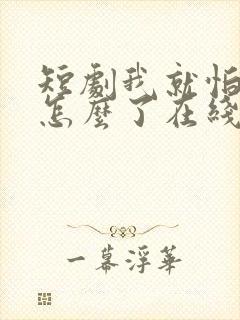 短劇我就怕
怎麼了在綫
一幕浮華